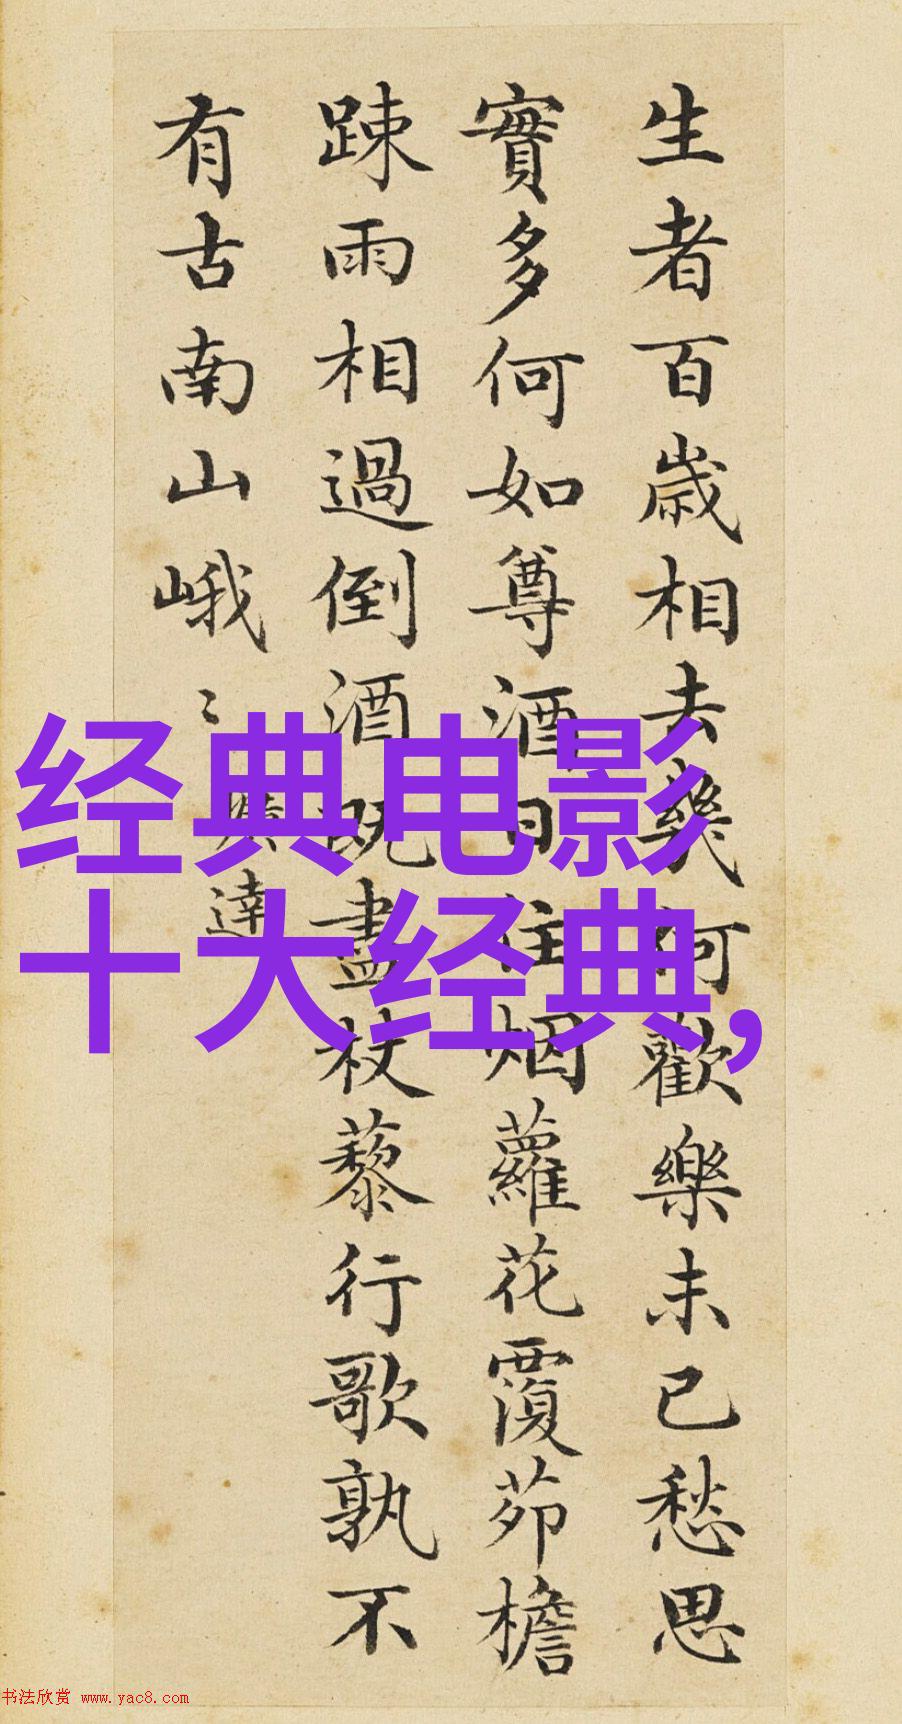 生者百歲相去幾何歡樂未已愁思
實多何如尊酒日往烟蘿花覆茆檐
踈雨相過倒酒既盡杖藜行歌孰不
有古南山峨〻曠達
经典电影
十大经典,
书法欣赏 www.yac8.com